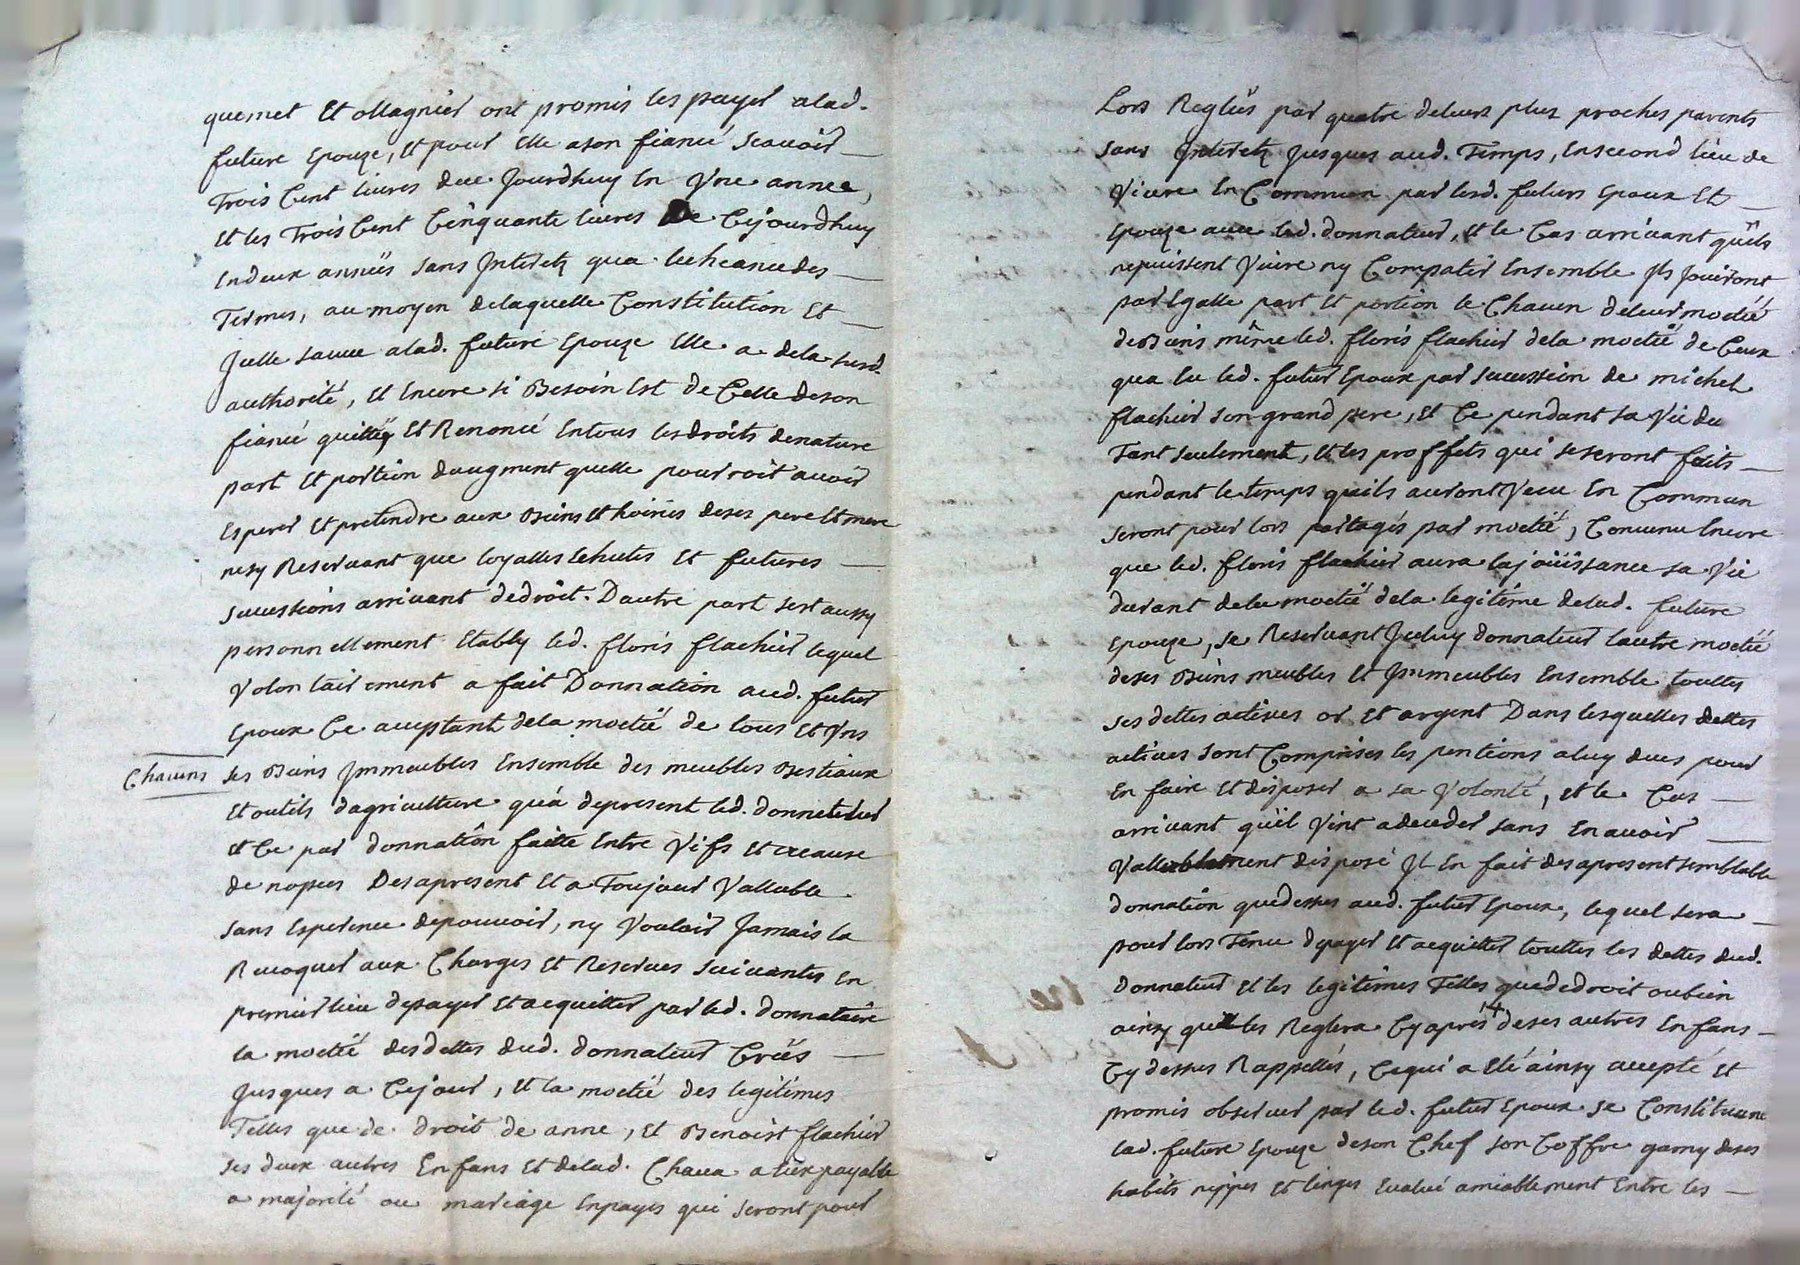 quemet Et ollagnier ont promis les payer a lad.
future Epouze, et pour Elle a son fiancé scavoir
Trois Cent livres due Jourdhuy En Vne année,
Et les Trois Cent Cinquante livres De Cejourdhuy
En deux années sans Interetz qua lecheance des
Termes, au moyen de laquelle Constitution Et
Icelle sauve a lad. future Epouze Elle a de la susd.
authorité, Et Encore si Besoin Est de Celle de son
fiancé quitté Et Renoncé En tous les droits de nature
part Et portion daugment quelle pourroit avoir
Esperer Et pretendre aux Biens Et hoiries de ses pere Et mere
nesy Reservant que loyalles Echutes Et futures
successions arrivant de droit. Dautre part sest aussy
personnellement Etably led. floris flachier lequel
Volontairement a fait Donnation aud. futur
Epoux Ce acceptant de la moetié de tous Et Vns
Chacuns
ses Biens Immeubles Ensemble des meubles Bestiaux
Et outils dagriculture qu'a depresent led. donnateur
Et Ce par donnation faitte Entre Vifs Et acause
de nopces Des apresent Et a Toujour Vallable
sans Esperence de pouvoir, ny Vouloir Jamais la
Revoquer aux Charges Et Reserves suivantes En
premier lieu de payer Et acquitter par led. donnataire
la moetié des dettes dud. donnateur Créés
Jusques a Cejour, Et la moetié des legitimes
Telles que de droit de anne, Et Benoist flachier
ses deux autres Enfans Et de lad. Chava a Eux payable
a majorité ou mariage En payes qui seront pour
Lors Reglés par quatre de leurs plus proches parents
sans Interetz Jusques aud. Temps, En second lieu de
Vivre En Commun par lesd. futurs Epoux Et
Epouze avec led. donnateur, Et le Cas arrivant quils
ne puissent Vivre ny Compatir Ensemble Ils Jouiront
par Egalle part Et portion le Chacun de leur moetié
de Biens même led. floris flachier de la moetié de Ceux
qua Eu led. futur Epoux par succession de michel
flachier son grand pere, Et Ce pendant sa Vie du
Tant seulement, Et les proffets qui se seront faits
pendant le temps quils auront Vecu En Commun
seront pour lors partagés par moetié, Convenu Encore
que led. floris flachier aura la jouissance sa Vie
durant de la moetié de la legitime de lad. future
Epouze, se Reservant Iceluy donnateur lautre moetié
de ses Biens meubles Et Immeubles Ensemble touttes
ses dettes actives or Et argent Dans lesquelles dettes
actives sont Comprises les pentions a luy dues pour
En faire Et disposer a sa Volonté, Et le Cas
arrivant qu'il Vint a deceder sans En avoir
Vallablement disposé Il En fait des apresent semblable
donnation que dessus aud. futur Epoux, lequel sera
pour lors Tenu de payer Et acquitter touttes les dettes dud.
Donnateur Et les legitimes Telles que de droit oubien
ainsy que les Reglera Cy apres de ses autres Enfans
Cy dessus Rappellés, Ce qui a Eté ainsy accepté Et
promis observer par led. futur Epoux se Constituant
lad. future Epouze de son Chef son Coffre garny de ses
habits nippes Et linges Evalué amiablement Entre les